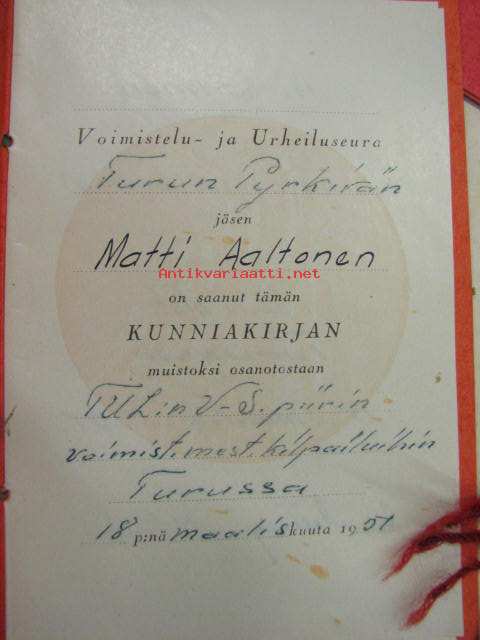 Voimistelu- ja Urheiluseura
Turun Pyrkivän
jäsen
Matti Aaltonen
Antikvariaatti.net
on saanut tämän
KUNNIAKIRJAN
muistoksi osanotostaan
TUL:in V-S. piirin
voimist.mest.kilpailuihin
Turussa
18 p:nä maaliskuuta 1951